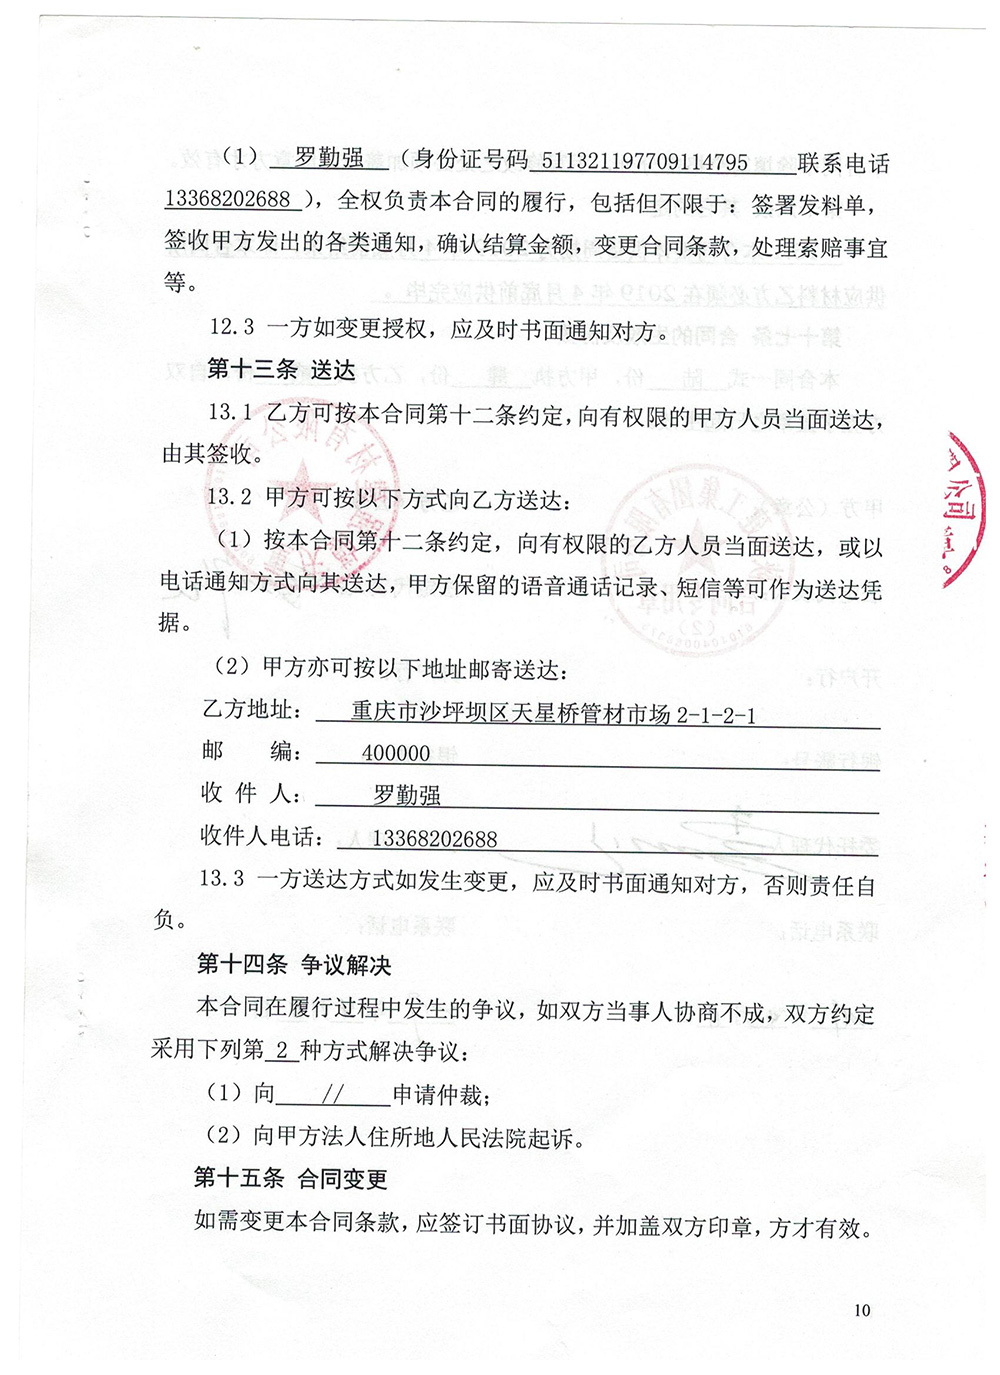 （1） 罗勤强 （身份证号码 511321197709114795 联系电话
13368202688 ），全权负责本合同的履行，包括但不限于：签署发料单，
签收甲方发出的各类通知，确认结算金额，变更合同条款，处理索赔事宜
等。
12.3 一方如变更授权，应及时书面通知对方。
第十三条 送达
13.1 乙方可按本合同第十二条约定，向有权限的甲方人员当面送达，
由其签收。
13.2 甲方可按以下方式向乙方送达：
（1）按本合同第十二条约定，向有权限的乙方人员当面送达，或以
电话通知方式向其送达，甲方保留的语音通话记录、短信等可作为送达凭
据。
（2）甲方亦可按以下地址邮寄送达：
乙方地址： 重庆市沙坪坝区天星桥管材市场 2-1-2-1
邮 编： 400000
收 件 人： 罗勤强
收件人电话： 13368202688
13.3 一方送达方式如发生变更，应及时书面通知对方，否则责任自
负。
第十四条 争议解决
本合同在履行过程中发生的争议，如双方当事人协商不成，双方约定
采用下列第 2 种方式解决争议：
（1）向 // 申请仲裁；
（2）向甲方法人住所地人民法院起诉。
第十五条 合同变更
如需变更本合同条款，应签订书面协议，并加盖双方印章，方才有效。
公司
10